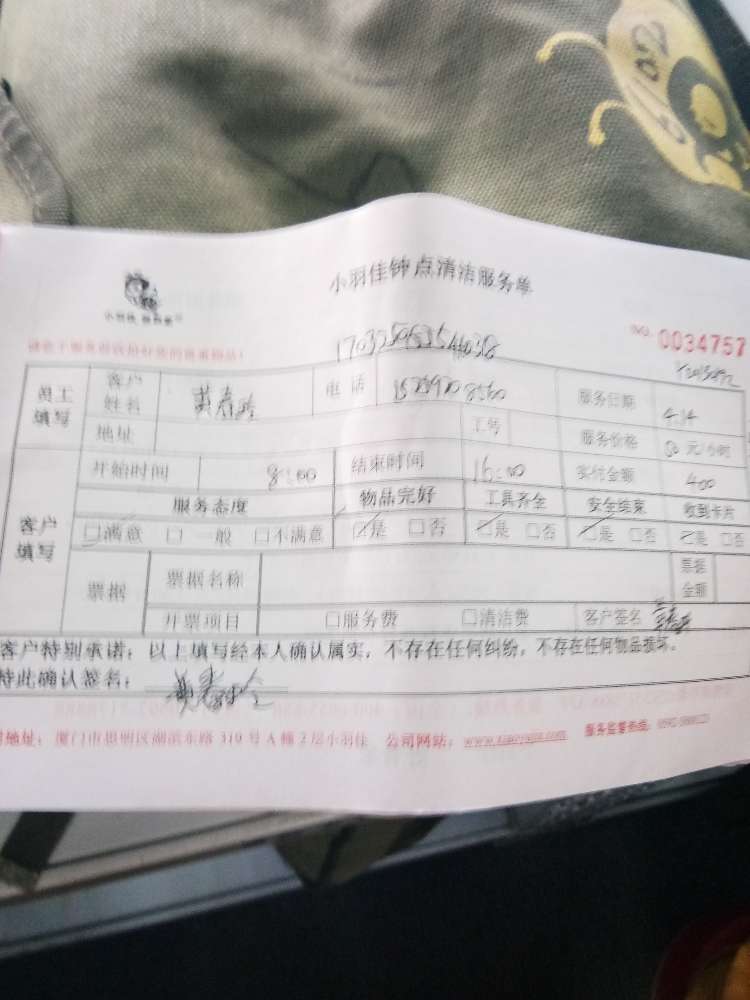 6102
小羽佳钟点清洁服务单
小羽佳
NO. 0034757
员工填写 客户姓名 黄春玲 电话 服务日期 4.14
地址 工号 服务价格 50 元/小时
客户填写 开始时间 8:00 结束时间 16:00 实付金额 400
服务态度 物品完好 工具齐全 安全结束 收到卡片
□满意 □一般 □不满意 □是 □否 □是 □否 □是 □否 □是 □否
票据 票据名称 票据金额
开票项目 □服务费 □清洁费 客户签名
客户特别承诺：以上填写经本人确认属实，不存在任何纠纷，不存在任何物品损坏。
特此确认签名： 黄春玲
地址：厦门市思明区湖滨东路 319 号 A 幢 2 层小羽佳 公司网站： 服务监督热线：